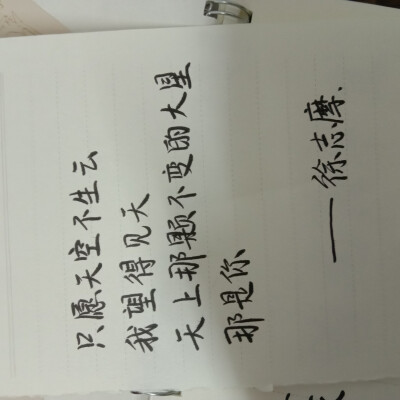 只愿天空不生云
我望得见天
天上那颗不变的大星
那是你
——徐志摩.